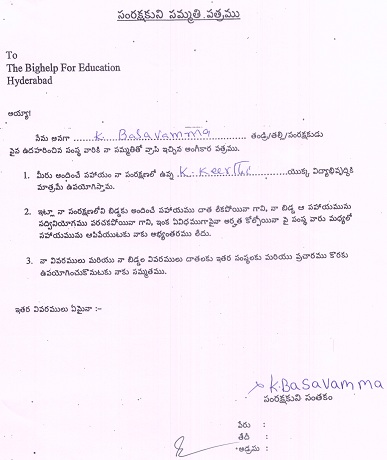 సంరక్షకుని సమ్మతి పత్రము
To
The Bighelp For Education
Hyderabad
అయ్యా!
నేను అనగా K. Basavamma తండ్రి/తల్లి/సంరక్షకుడు
పైన ఉదహరించిన సంస్థ వారికి నా సమ్మతితో వ్రాసి ఇచ్చిన అంగీకార పత్రము.
1. మీరు అందించే సహాయం నా సంరక్షణలో ఉన్న K. Keerthi యొక్క విద్యాభివృద్ధికి
మాత్రమే ఉపయోగిస్తాను.
2. ఇట్లా నా సంరక్షణలోని బిడ్డకు అందించే సహాయము దాత లేకపోయినా గాని, నా బిడ్డ ఆ సహాయమును
సద్వినియోగము పరచకపోయినా గాని, ఇంక ఏవిధముగానైనా అర్హత కోల్పోయినా పై సంస్థ వారు మధ్యలో
సహాయమును ఆపివేయుటకు నాకు అభ్యంతరము లేదు.
3. నా వివరములు మరియు నా బిడ్డల వివరములు దాతలకు ఇతర సంస్థలకు మరియు ప్రచారము కొరకు
ఉపయోగించుకొనుటకు నాకు సమ్మతము.
ఇతర వివరములు ఏమైనా :-
K. Basavamma
సంరక్షకుని సంతకం
పేరు :
తేదీ :
అడ్రసు :